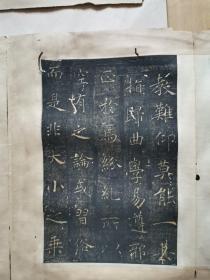 教難仰莫能一其
指歸曲學易遵邪
正於焉紛糺所以
空有之論或習俗
而是非大小之乘